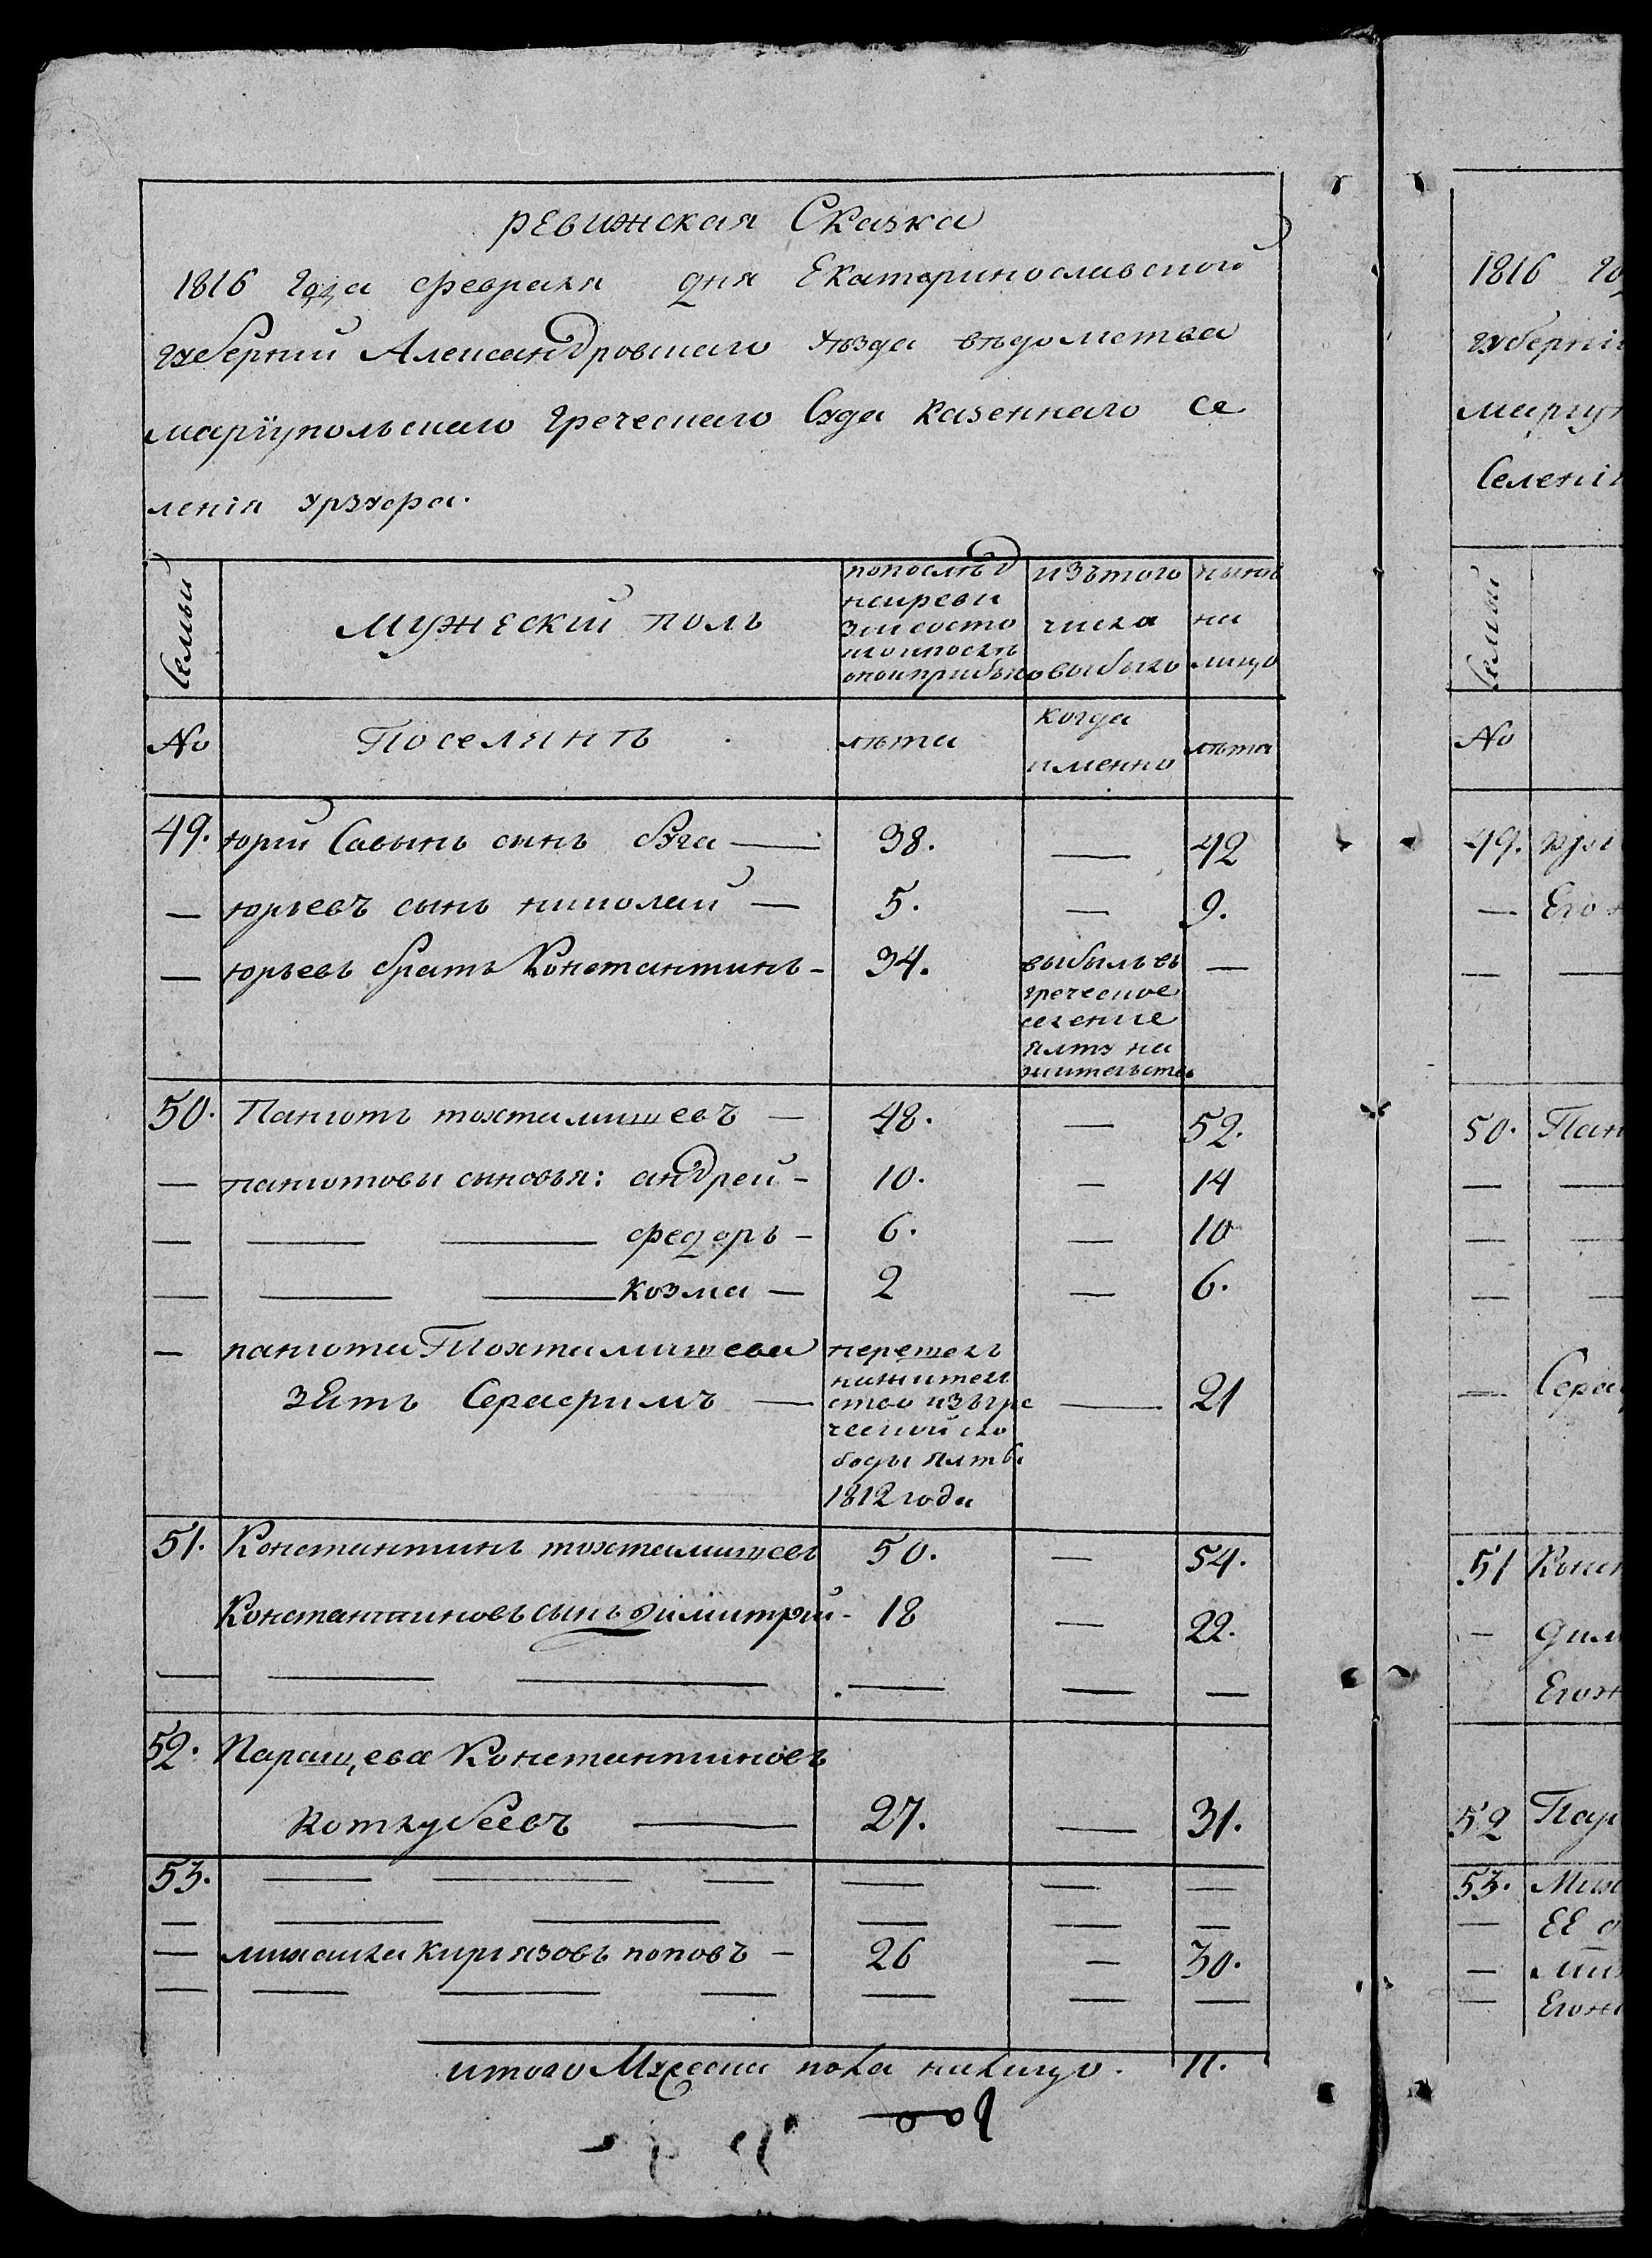 ревижская Сказка
1816 года февраля дня Екатеринославской
губернии Александровскаго уѣзда вѣдомства
мариупольскаго греческаго Суда казеннаго се
ленія урзуфа.
Семьи
мужеский полъ
попослѣд
ней реви
зии состо
яло и послѣ
оной прибыло
изътого
числа
выбыло
нынѣ
на
лицо
No
Поселянъ
лѣта
когда
именно
лѣта
49. юрий Савынъ сынъ буга — 38. — 42
— юрьевъ сынъ николай — 5. — 9.
— юрьевъ братъ Константинъ - 34. выбылъ въ —
греческое
селение
ялту на
жительство
50. Паниотъ тохтамишевъ — 48. — 52.
— паниотовы сыновья: андрей - 10. — 14
— — — федоръ - 6. — 10
— — — козма — 2 — 6.
— паниота Тохтамишева перешелъ
зять Серафимъ — — 21
нажител
ство изъгре
ческой сло
боды ялты
1812 года
51. Константинъ тохтамишевъ 50. — 54.
Константиновъ сынъ димитрий - 18 — 22.
— — — — — —
52. Паращева Константиновъ
котлубеевъ — 27. — 31.
53. — — — — — —
— — — — — —
— михаила киргязовъ поповъ — 26 — 30.
— — — — — — —
итого Мужеска пола налицо. 11.
1816 го
губерніи
мариуп
Селенія
Семьи
No
49.
— Его
— —
50. Пан
— —
— —
— —
— Сера
51 Конс
— дим
Егож
52 Пар
53. Миха
— ЕЕ
— мих
— Егож